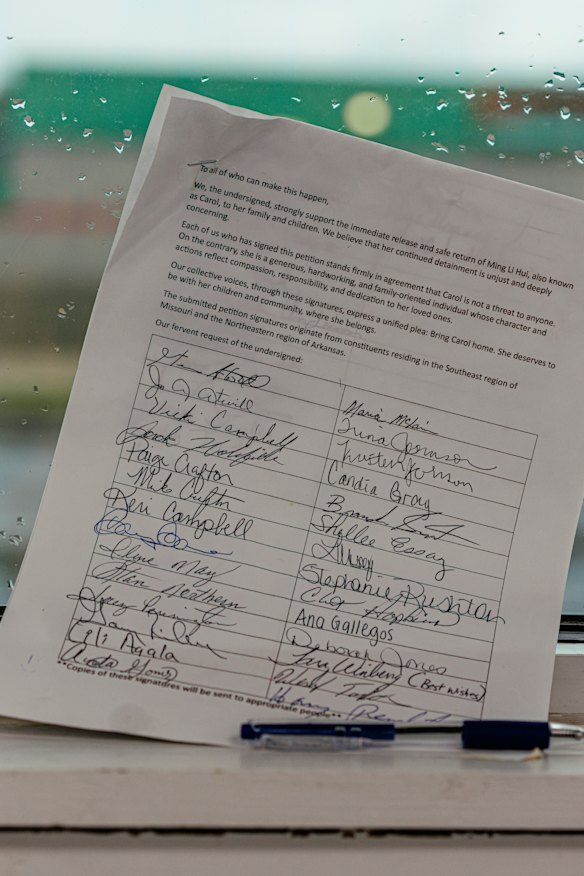 To all of who can make this happen,
We, the undersigned, strongly support the immediate release and safe return of Ming Li Hui, also known
as Carol, to her family and children. We believe that her continued detainment is unjust and deeply
concerning.
Each of us who has signed this petition stands firmly in agreement that Carol is not a threat to anyone.
On the contrary, she is a generous, hardworking, and family-oriented individual whose character and
actions reflect compassion, responsibility, and dedication to her loved ones.
Our collective voices, through these signatures, express a unified plea: Bring Carol home. She deserves to
be with her children and community, where she belongs.
The submitted petition signatures originate from constituents residing in the Southeast region of
Missouri and the Northeastern region of Arkansas.
Our fervent request of the undersigned:
Vicki Campbell
Paige Crafton
Mike Crafton
Keri Campbell
Ilene May
Alan
Lili Ayala
Maria
Trina Johnson
Kristen Johnson
Candia Gray
Shyllee Essay
Stephanie Rushton
Ana Gallegos
Deborah Jones
(Best wishes)
**Copies of these signatures will be sent to appropriate people**